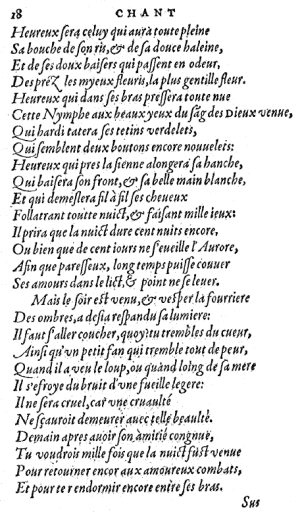 18 CHANT
Heureux sera celuy qui aura toute pleine
Sa bouche de son ris, & de sa douce haleine,
Et de ses doux baisers qui passent en odeur,
Des préz les myeux fleuris, la plus gentille fleur.
Heureux qui dans ses bras pressera toute nue
Cette Nymphe aux beaux yeux du sãg des Dieux venue,
Qui hardi tatera ses tetins verdelets,
Qui semblent deux boutons encore nouuelets:
Heureux qui pres la sienne alongera sa hanche,
Qui baisera son front, & sa belle main blanche,
Et qui demeslera fil à fil ses cheueux
Follatrant toutte nuict, & faisant mille ieux:
Il prira que la nuict dure cent nuits encore,
Ou bien que de cent iours ne s'eueille l'Aurore,
Afin que paresseux, long temps puisse couuer
Ses amours dans le lict, & point ne se leuer.
Mais le soir est venu, & vesper la fourriere
Des ombres, a desia respandu sa lumiere:
Il faut s'aller coucher, quoy? tu trembles du cueur,
Ainsi qu'vn petit fan qui tremble tout de peur,
Quand il a veu le loup, ou quand loing de sa mere
Il s'efroye du bruit d'vne fueille legere:
Il ne sera cruel, car vne cruaulté
Ne sçauroit demeurer auec telle beaulté.
Demain apres auoir son amitié congnue,
Tu voudrois mille fois que la nuict fust venue
Pour retourner encor aux amoureux combats,
Et pour te r'endormir encore entre ses bras.
Sus